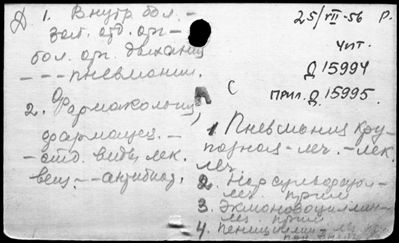 Д 1. Внутр. бол. -
зат. отд. орг -
бол. орг. дыхания
- - - пневмонии.
2. Фармакология,
фармацев. -
- отд. виды лек.
вещ. - - антибиот.
25/VII-56 Р.
Чит.
Д 15994
ПРИЛ. Д 15995.
А С
1. Пневмония кру-
позная - леч. - лек.
леч.
2. Норсульфазол -
леч. прим.
3. Экмоновоциллин -
леч. прим.
4. Пенициллин -